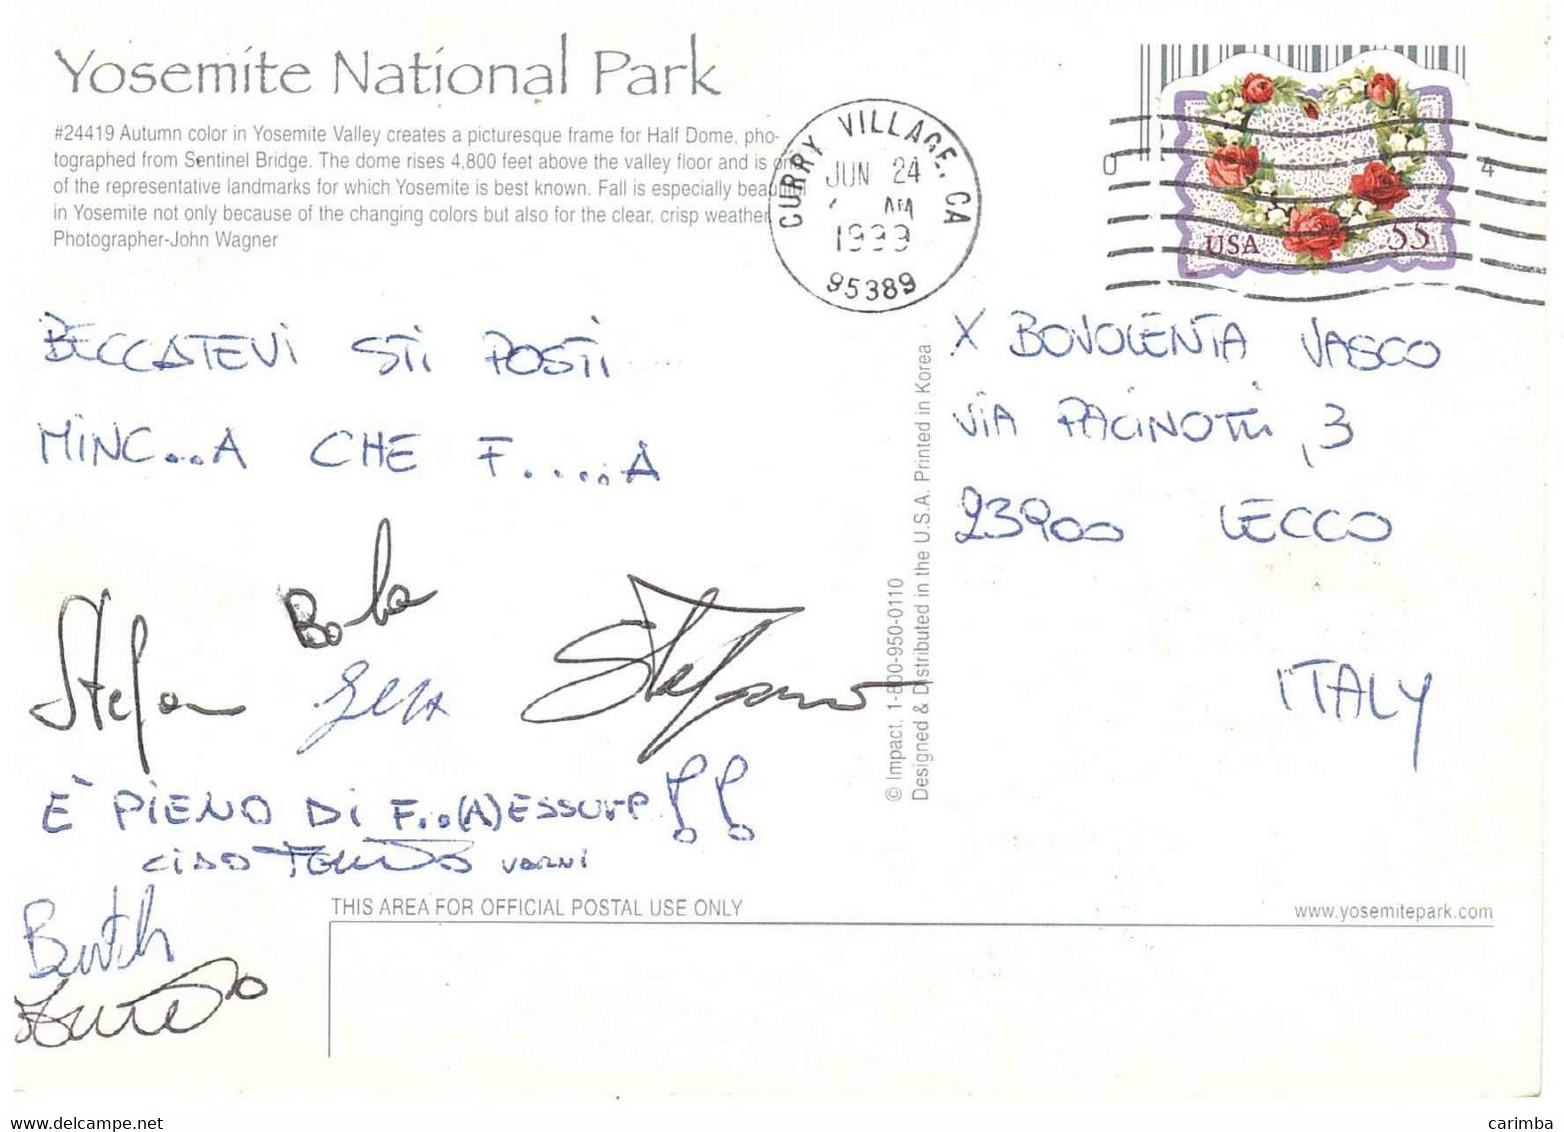 Yosemite National Park
#24419 Autumn color in Yosemite Valley creates a picturesque frame for Half Dome, pho-
tographed from Sentinel Bridge. The dome rises 4,800 feet above the valley floor and is one
of the representative landmarks for which Yosemite is best known. Fall is especially beau
in Yosemite not only because of the changing colors but also for the clear, crisp weather
Photographer-John Wagner
CURRY VILLAGE, CA
JUN 24
AM
1999
95389
0 4
USA 55
BECCATEVI STI POSTI
MINC...A CHE F.....A
X BOVOLENTA VASCO
VIA PACINOTTI, 3
23900 LECCO
ITALY
© Impact. 1-800-950-0110
Designed & Distributed in the U.S.A. Printed in Korea
Stefano
Stefano
È PIENO DI F..(A)ESSURE!!
CIAO
THIS AREA FOR OFFICIAL POSTAL USE ONLY
www.yosemitepark.com
delcampe.net
carimba